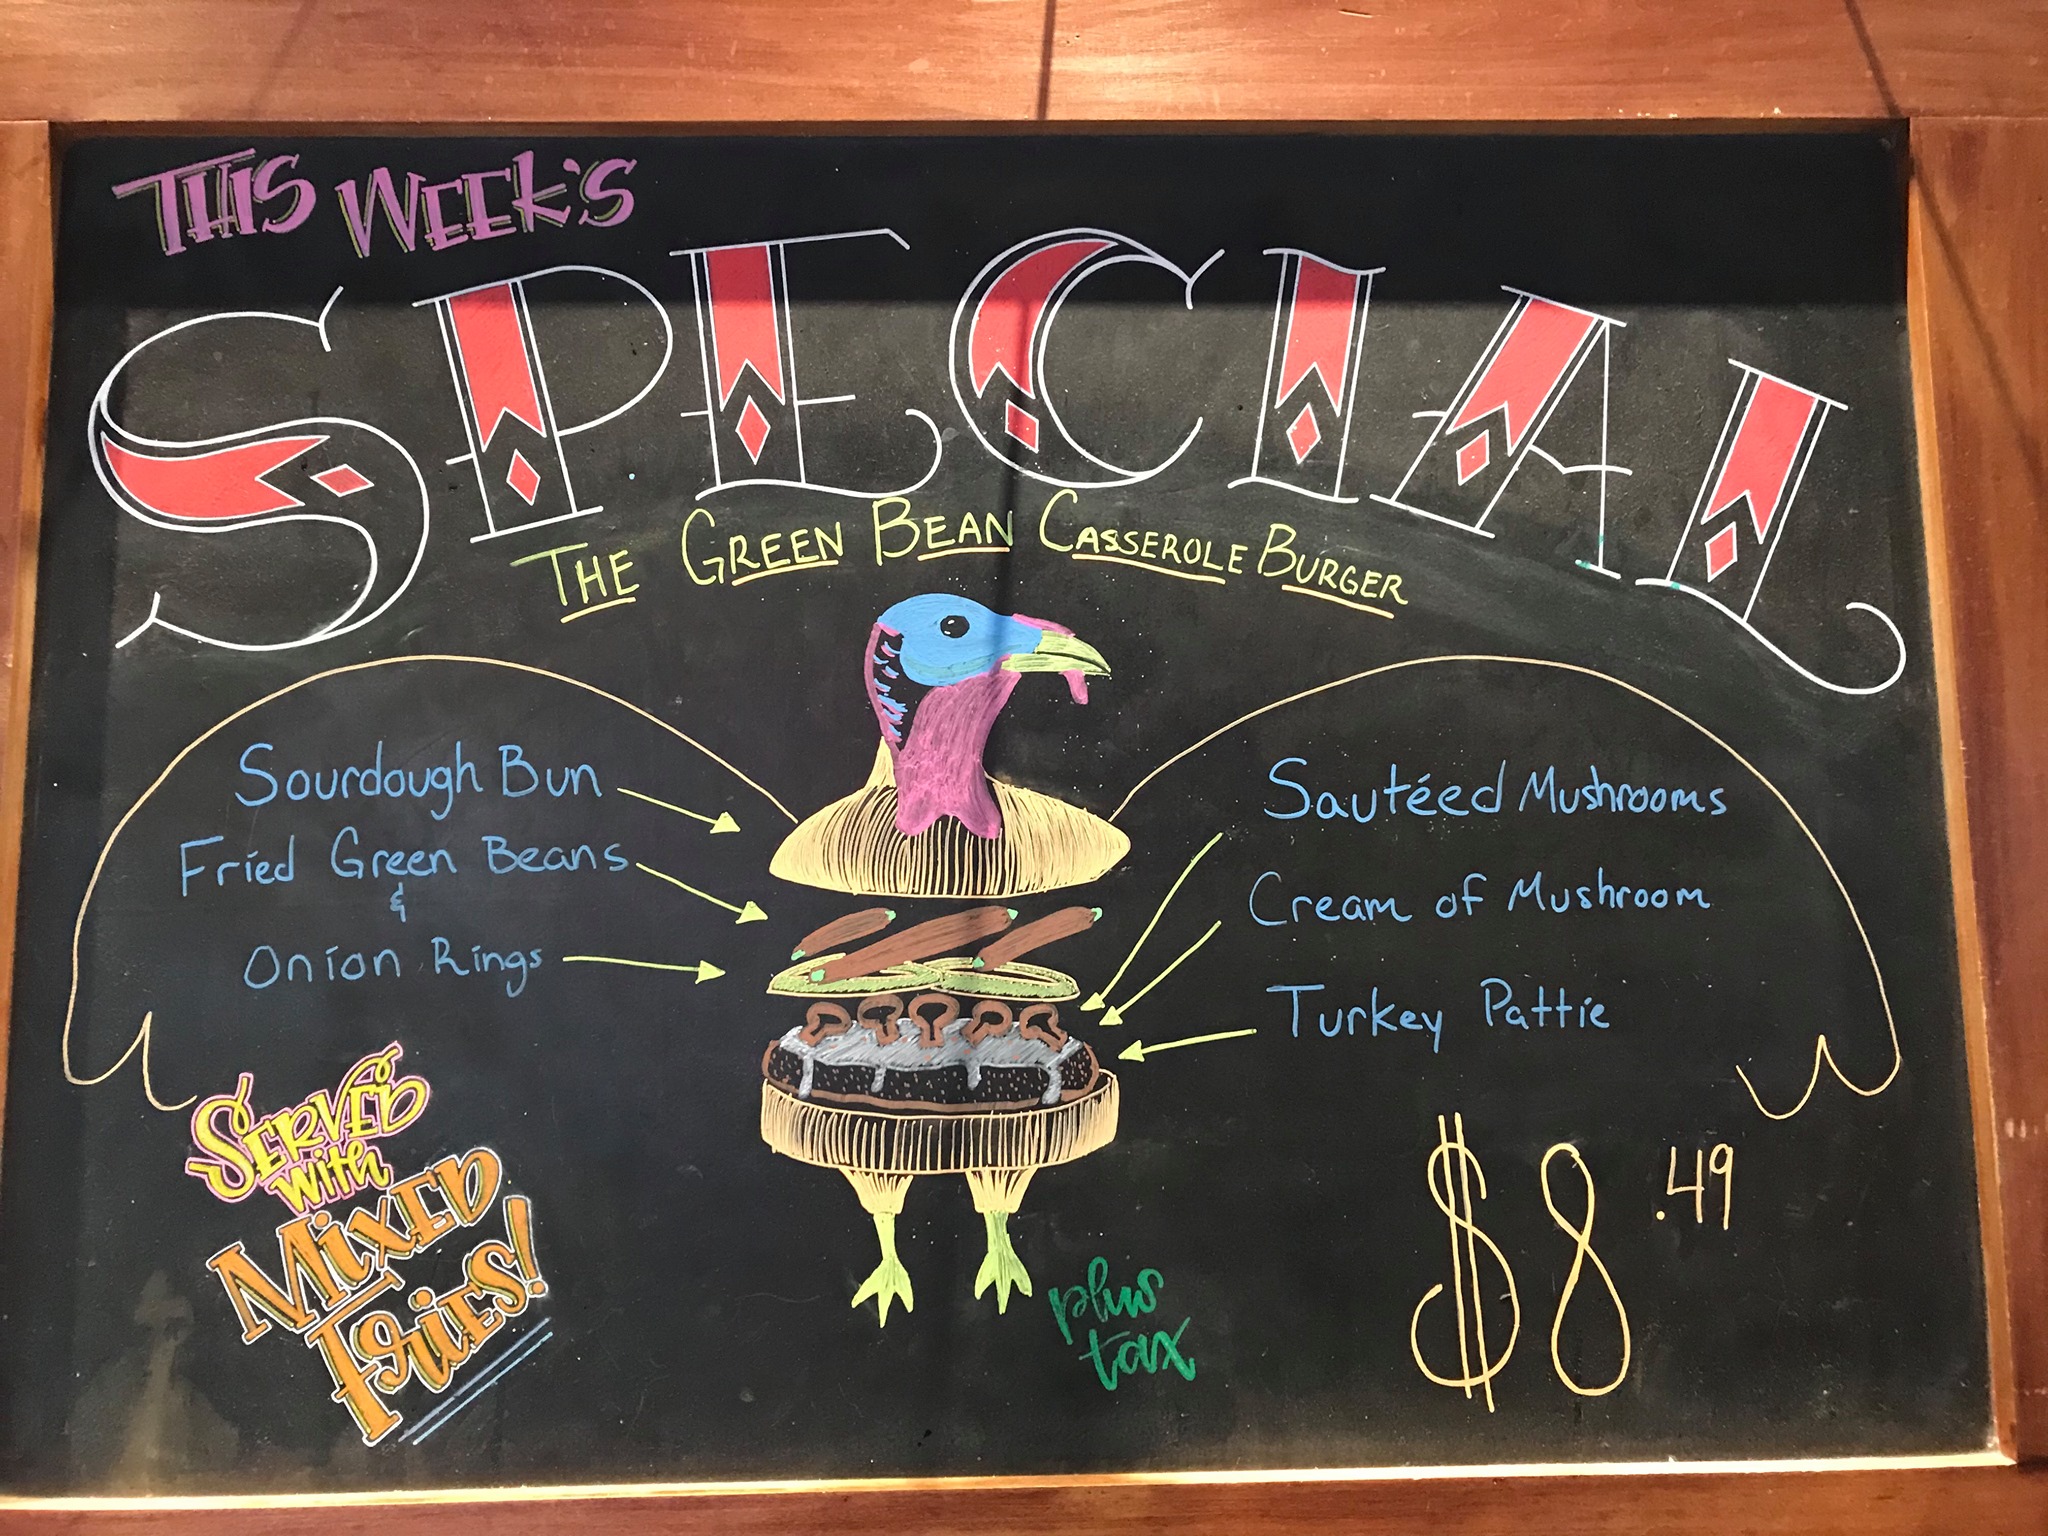 THIS WEEK'S
SPECIAL
THE GREEN BEAN CASSEROLE BURGER
Sourdough Bun
Fried Green Beans
&
Onion Rings
Sautéed Mushrooms
Cream of Mushroom
Turkey Pattie
SERVED
with
MixED
FriES!
plus
tax
$8.49